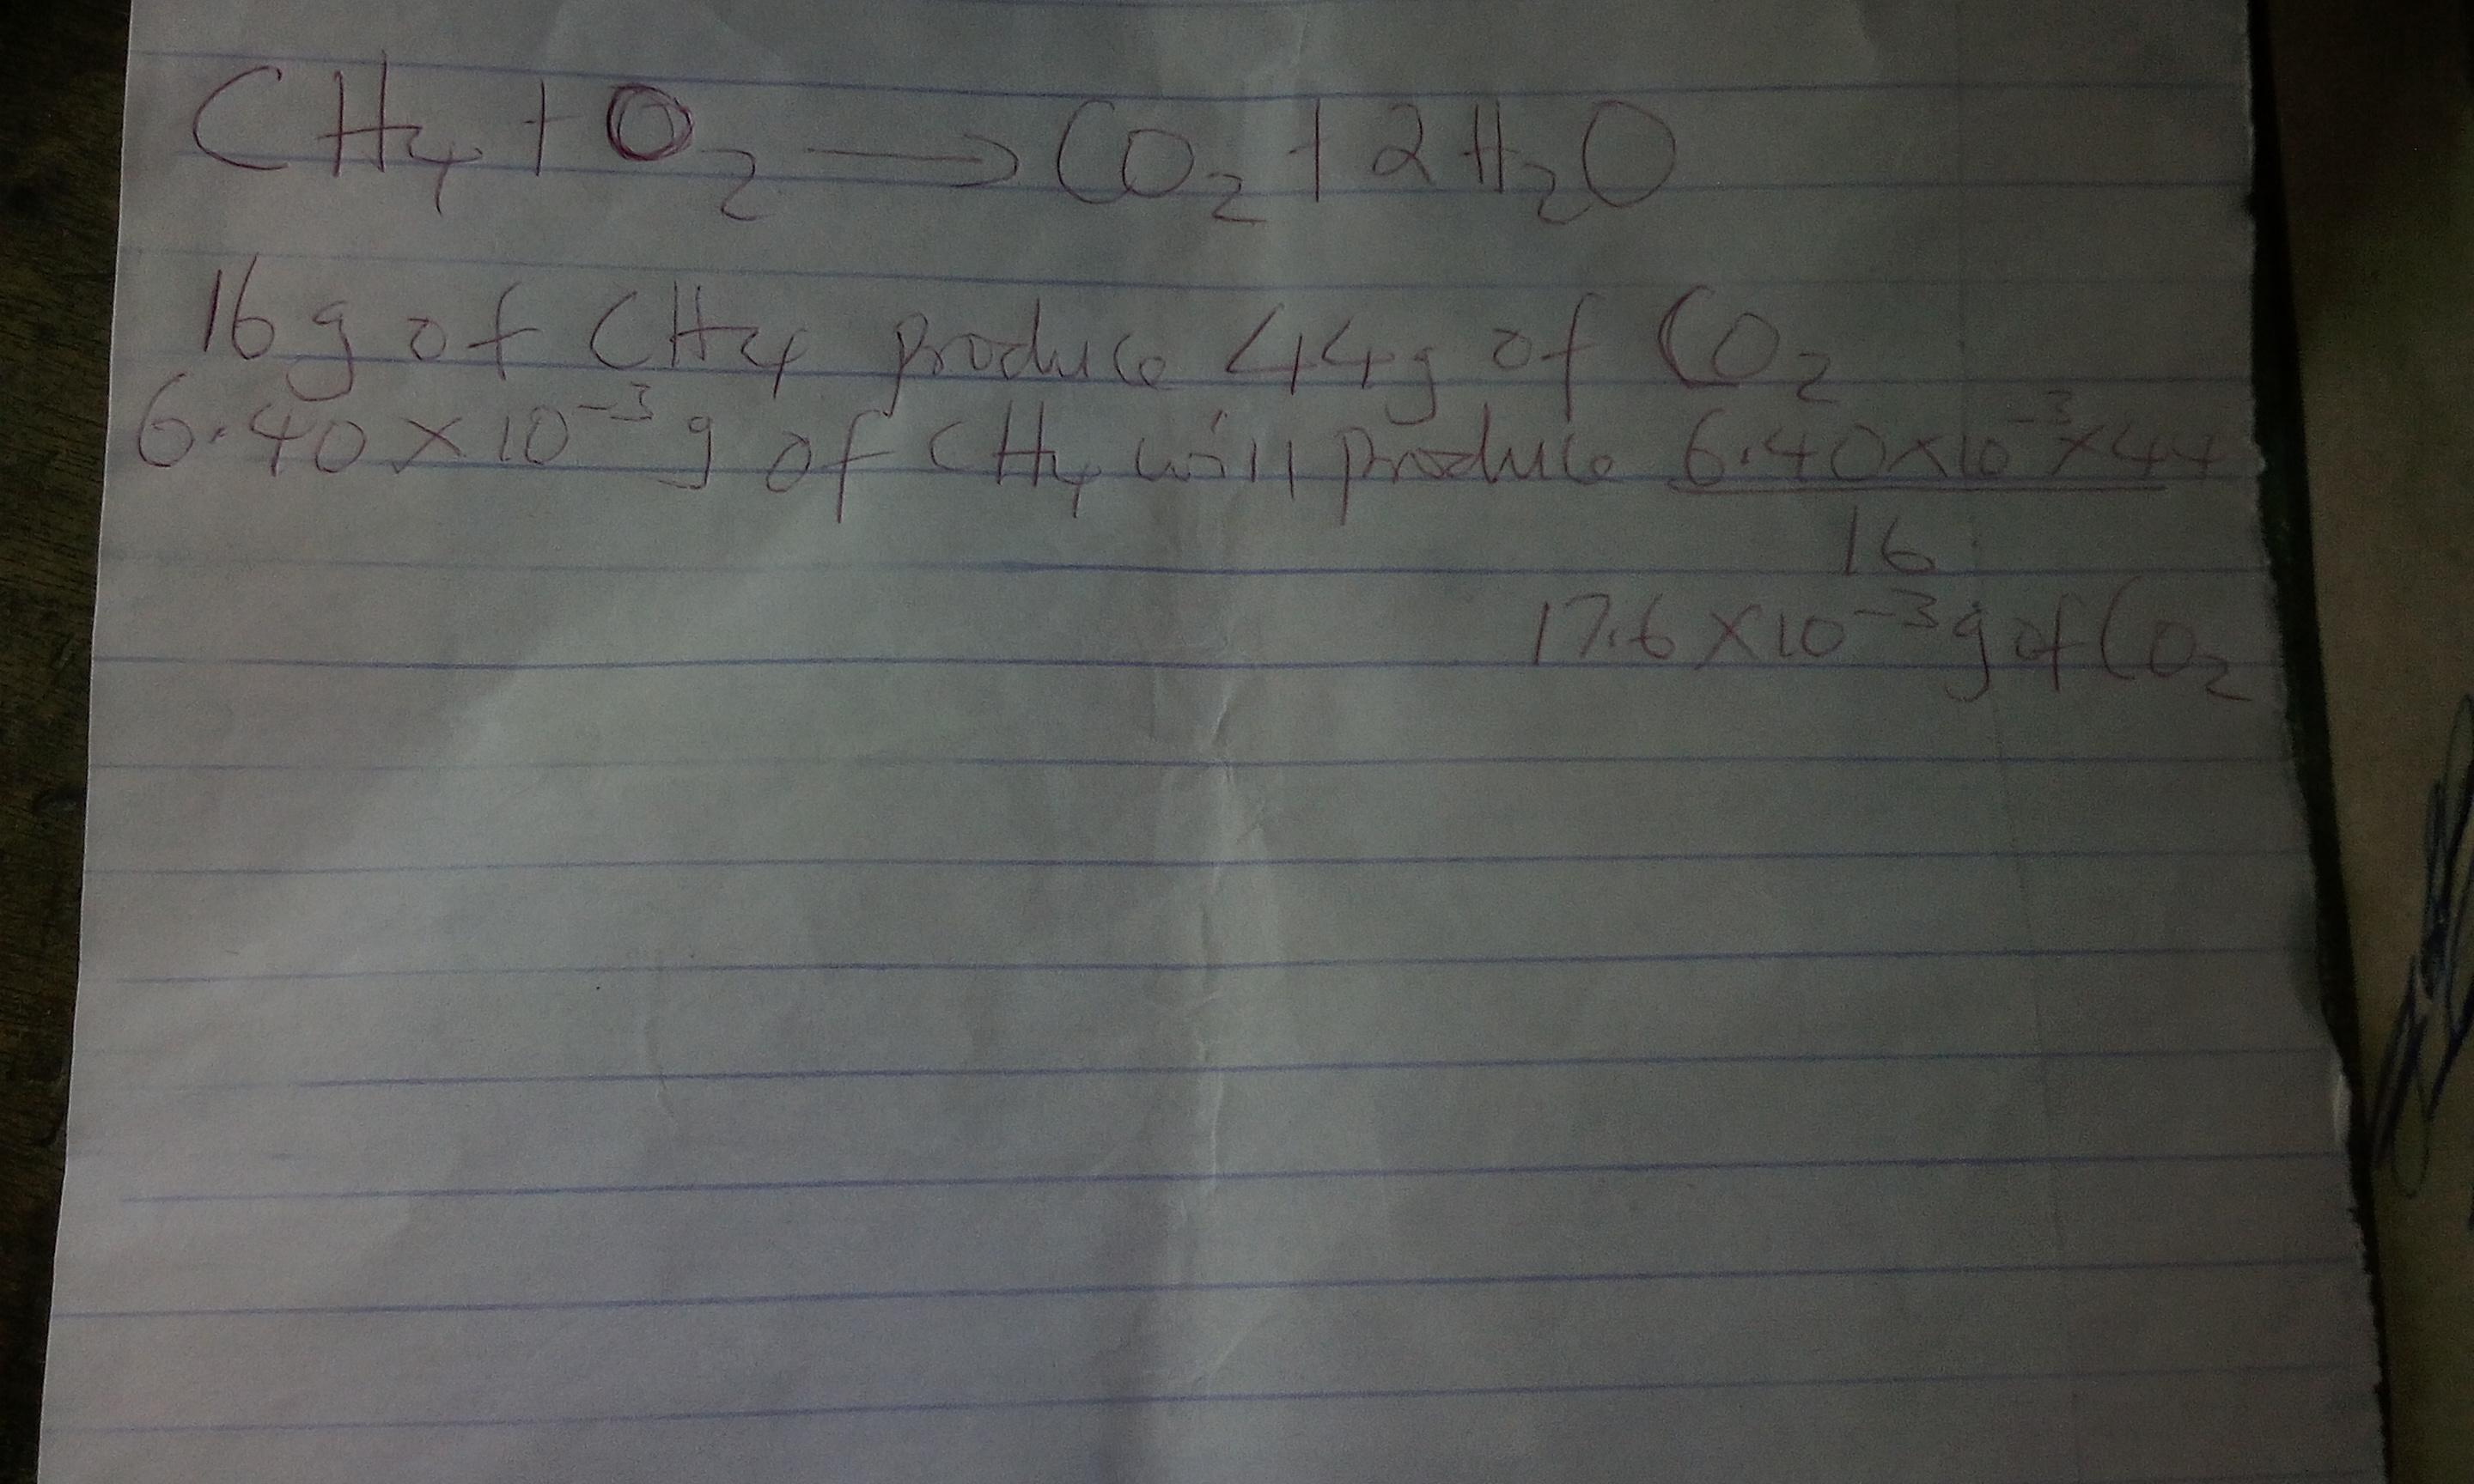 CH₄ + O₂ → CO₂ + 2H₂O
16g of CH₄ produce 44g of CO₂
6.40 × 10⁻³ g of CH₄ will produce 6.40×10⁻³×44
16
17.6 × 10⁻³ g of CO₂